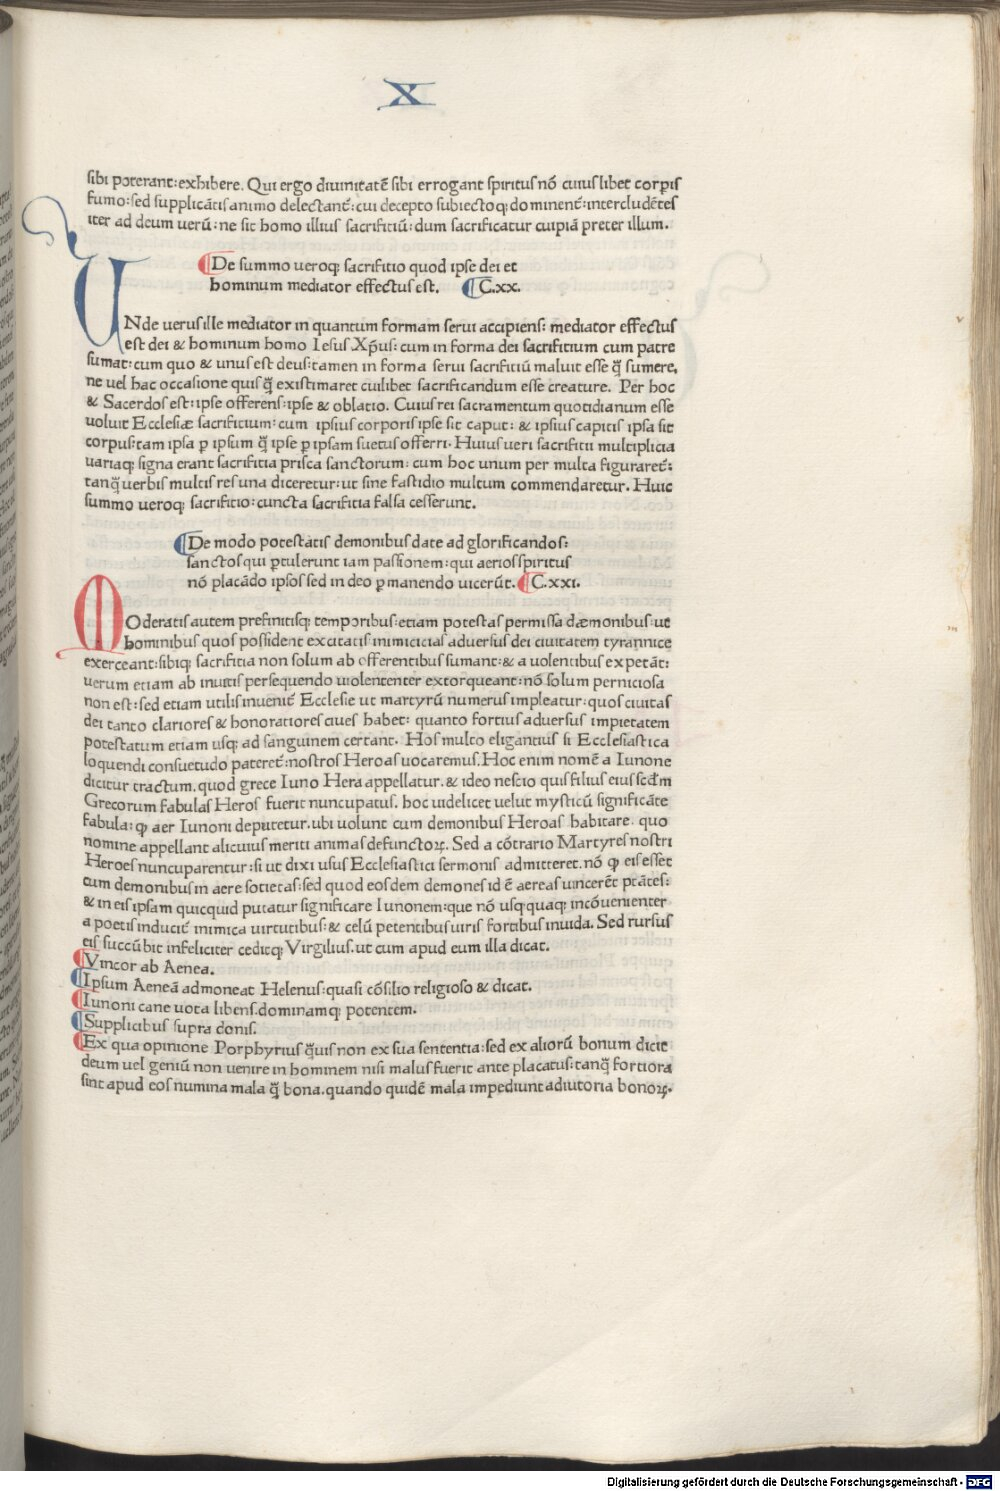 X
sibi poterant: exhibere. Qui ergo diuinitatē sibi errogant spiritus nō cuiuslibet corꝑis
fumo: sed supplicātis animo delectant᷑: cui decepto subiectoqꝫ dominent᷑: intercludētes
iter ad deum uerū: ne sit homo illius sacrifitiū: dum sacrificatur cuipiā preter illum.
¶De summo ueroqꝫ sacrifitio quod ipse dei et
hominum mediator effectus est. ¶C.xx.
UNde uerus ille mediator in quantum formam serui accipiens: mediator effectus
est dei & hominum homo Iesus Xp̄us: cum in forma dei sacrifitium cum patre
sumat: cum quo & unus est deus: tamen in forma serui sacrifitiū maluit esse q̄ sumere,
ne uel hac occasione quis q̄ existimaret cuilibet sacrificandum esse creature. Per hoc
& Sacerdos est: ipse offerens: ipse & oblatio. Cuius rei sacramentum quotidianum esse
uoluit Ecclesiæ sacrifitium: cum ipsius corporis ipse sit caput: & ipsius capitis ipsa sit
corpus: tam ipsa ꝑ ipsum q̄ ipse ꝑ ipsam suetus offerri. Huius ueri sacrifitii multiplicia
uariaqꝫ signa erant sacrifitia prisca sanctorum: cum hoc unum per multa figuraret᷑:
tanq̄ uerbis multis res una diceretur: ut sine fastidio multum commendaretur. Huic
summo ueroqꝫ sacrifitio: cuncta sacrifitia falsa cesserunt.
¶De modo potestatis demonibus date ad glorificandos:
sanctos qui ꝑtulerunt iam passionem: qui aerios spiritus
nō placādo ipsos sed in deo ꝑmanendo uicerūt. ¶C.xxi.
MOderatis autem prefinitisqꝫ temporibus: etiam potestas permissa dæmonibus: ut
hominibus quos possident excitatis inimicicias aduersus dei ciuitatem tyrannice
exerceant: sibiqꝫ sacrifitia non solum ab offerentibus sumant: & a uolentibus expetāt:
uerum etiam ab inuitis persequendo uiolententer extorqueant: nō solum perniciosa
non est: sed etiam utilis inuenit᷑ Ecclesie ut martyrū numerus impleatur: quos ciuitas
dei tanto clariores & honoratiores ciues habet: quanto fortius aduersus impietatem
potestatum etiam usqꝫ ad sanguinem certant. Hos multo eligantius si Ecclesiastica
loquendi consuetudo pateret᷑: nostros Heroas uocaremus. Hoc enim nomē a Iunone
dicitur tractum. quod grece Iuno Hera appellatur. & ideo nescio quis filius eius scd̄m
Grecorum fabulas Heros fuerit nuncupatus. hoc uidelicet uelut mysticū significāte
fabula: ꝙ aer Iunoni deputetur. ubi uolunt cum demonibus Heroas habitare. quo
nomine appellant alicuius meriti animas defunctoꝝ. Sed a cōtrario Martyres nostri
Heroes nuncuparentur: si ut dixi usus Ecclesiastici sermonis admitteret. nō ꝙ eis esset
cum demonibus in aere societas: sed quod eosdem demones id ē aereas uincerēt ptātes:
& in eis ipsam quicquid putatur significare Iunonem: que nō usqꝫquaqꝫ incōuenienter
a poetis inducit᷑ inimica uirtutibus: & celū petentibus uiris fortibus inuida. Sed rursus
eis succūbit infeliciter ceditqꝫ Virgilius. ut cum apud eum illa dicat.
¶Vincor ab Aenea.
¶Ipsum Aeneā admoneat Helenus: quasi cōsilio religioso & dicat.
¶Iunoni cane uota libens. dominamqꝫ potentem.
¶Supplicibus supra donis.
¶Ex qua opinione Porphyrius q̄uis non ex sua sententia: sed ex aliorū bonum dicit
deum uel geniū non uenire in hominem nisi malus fuerit ante placatus: tanq̄ fortiora
sint apud eos numina mala q̄ bona. quando quidē mala impediunt adiutoria bonoꝝ.
Digitalisierung gefördert durch die Deutsche Forschungsgemeinschaft - DFG